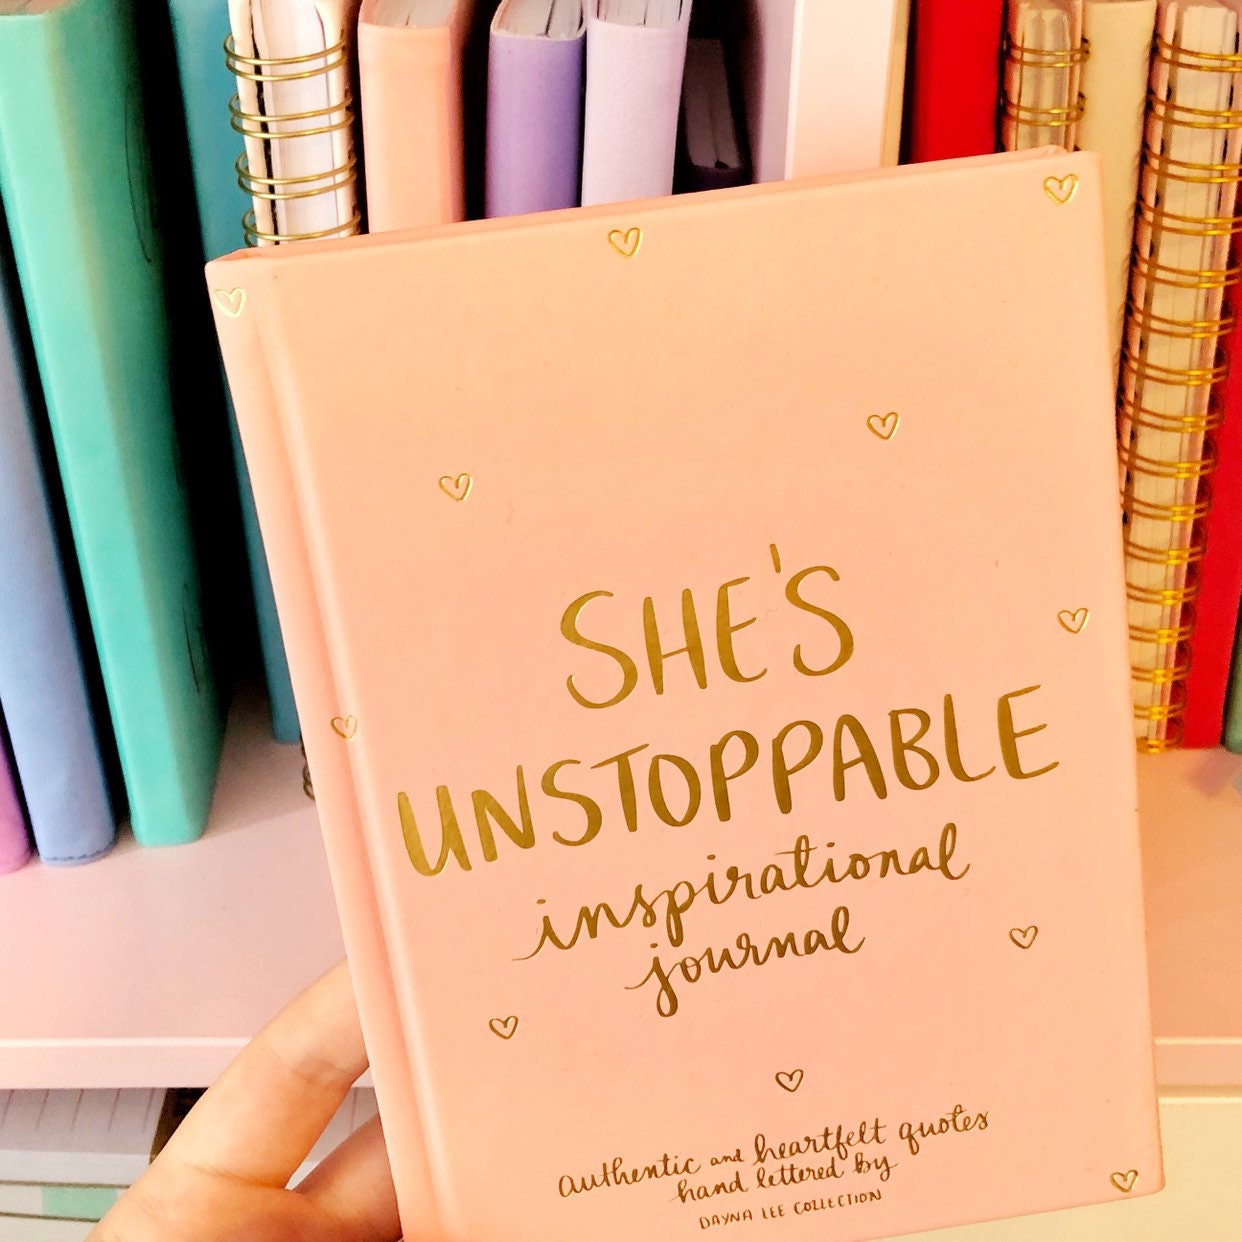 SHE'S
UNSTOPPABLE
inspirational
journal
authentic and heartfelt quotes
hand lettered by
DAYNA LEE COLLECTION